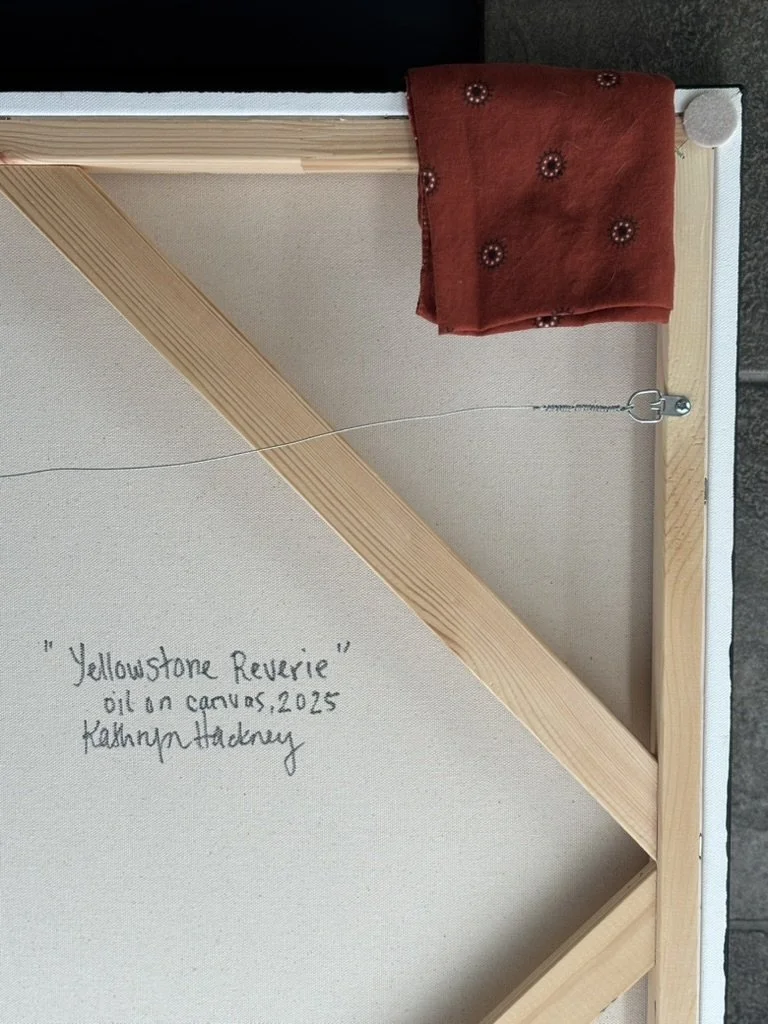 "Yellowstone Reverie"
oil on canvas, 2025
Kathryn Hackney